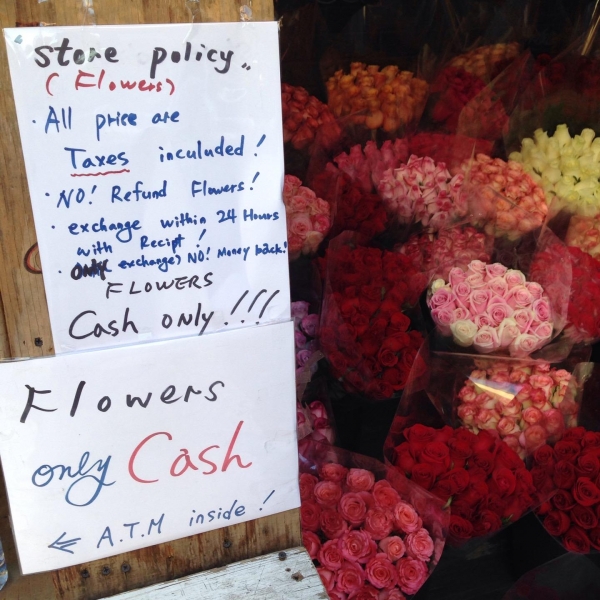 store policy..
(Flowers)
· All price are
Taxes inculuded!
· NO! Refund Flowers!
· exchange within 24 Hours
with Recipt!
· only exchange) NO! Money back!
FLOWERS
Cash only!!!!
Flowers
only Cash
← A.T.M inside!